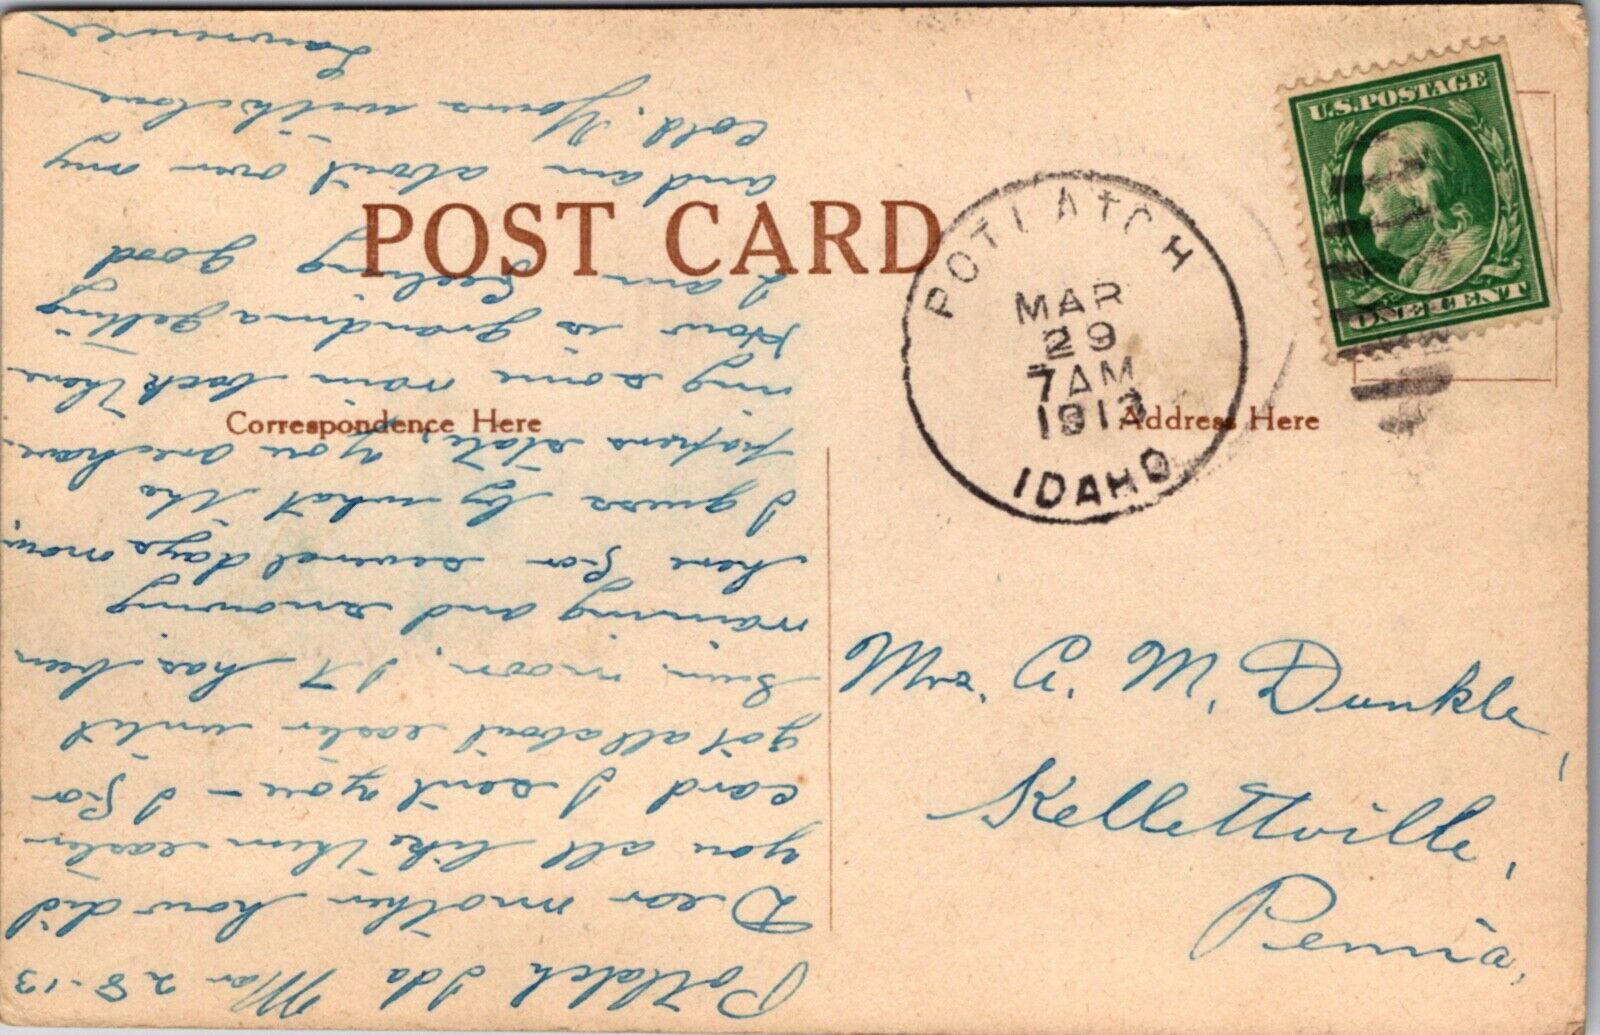 POST CARD
Correspondence Here
Address Here
U.S. POSTAGE
ONE CENT
POTLATCH
MAR
29
7 AM
1913
IDAHO
Mrs. A. M. Dunkle,
Kellettville,
Penna.
Potlatch Ida Mar 28-13
Dear mother how did
you all like them easter
card I sent you - I for
got all about easter until
Sun, noon, It has been
raining and snowing
here for several days now,
I guess by what the
papers state, you are hav-
ing some rain back there
How is grandma getting
I am feeling good
and am about over my
cold. Yours with love
Lawrence